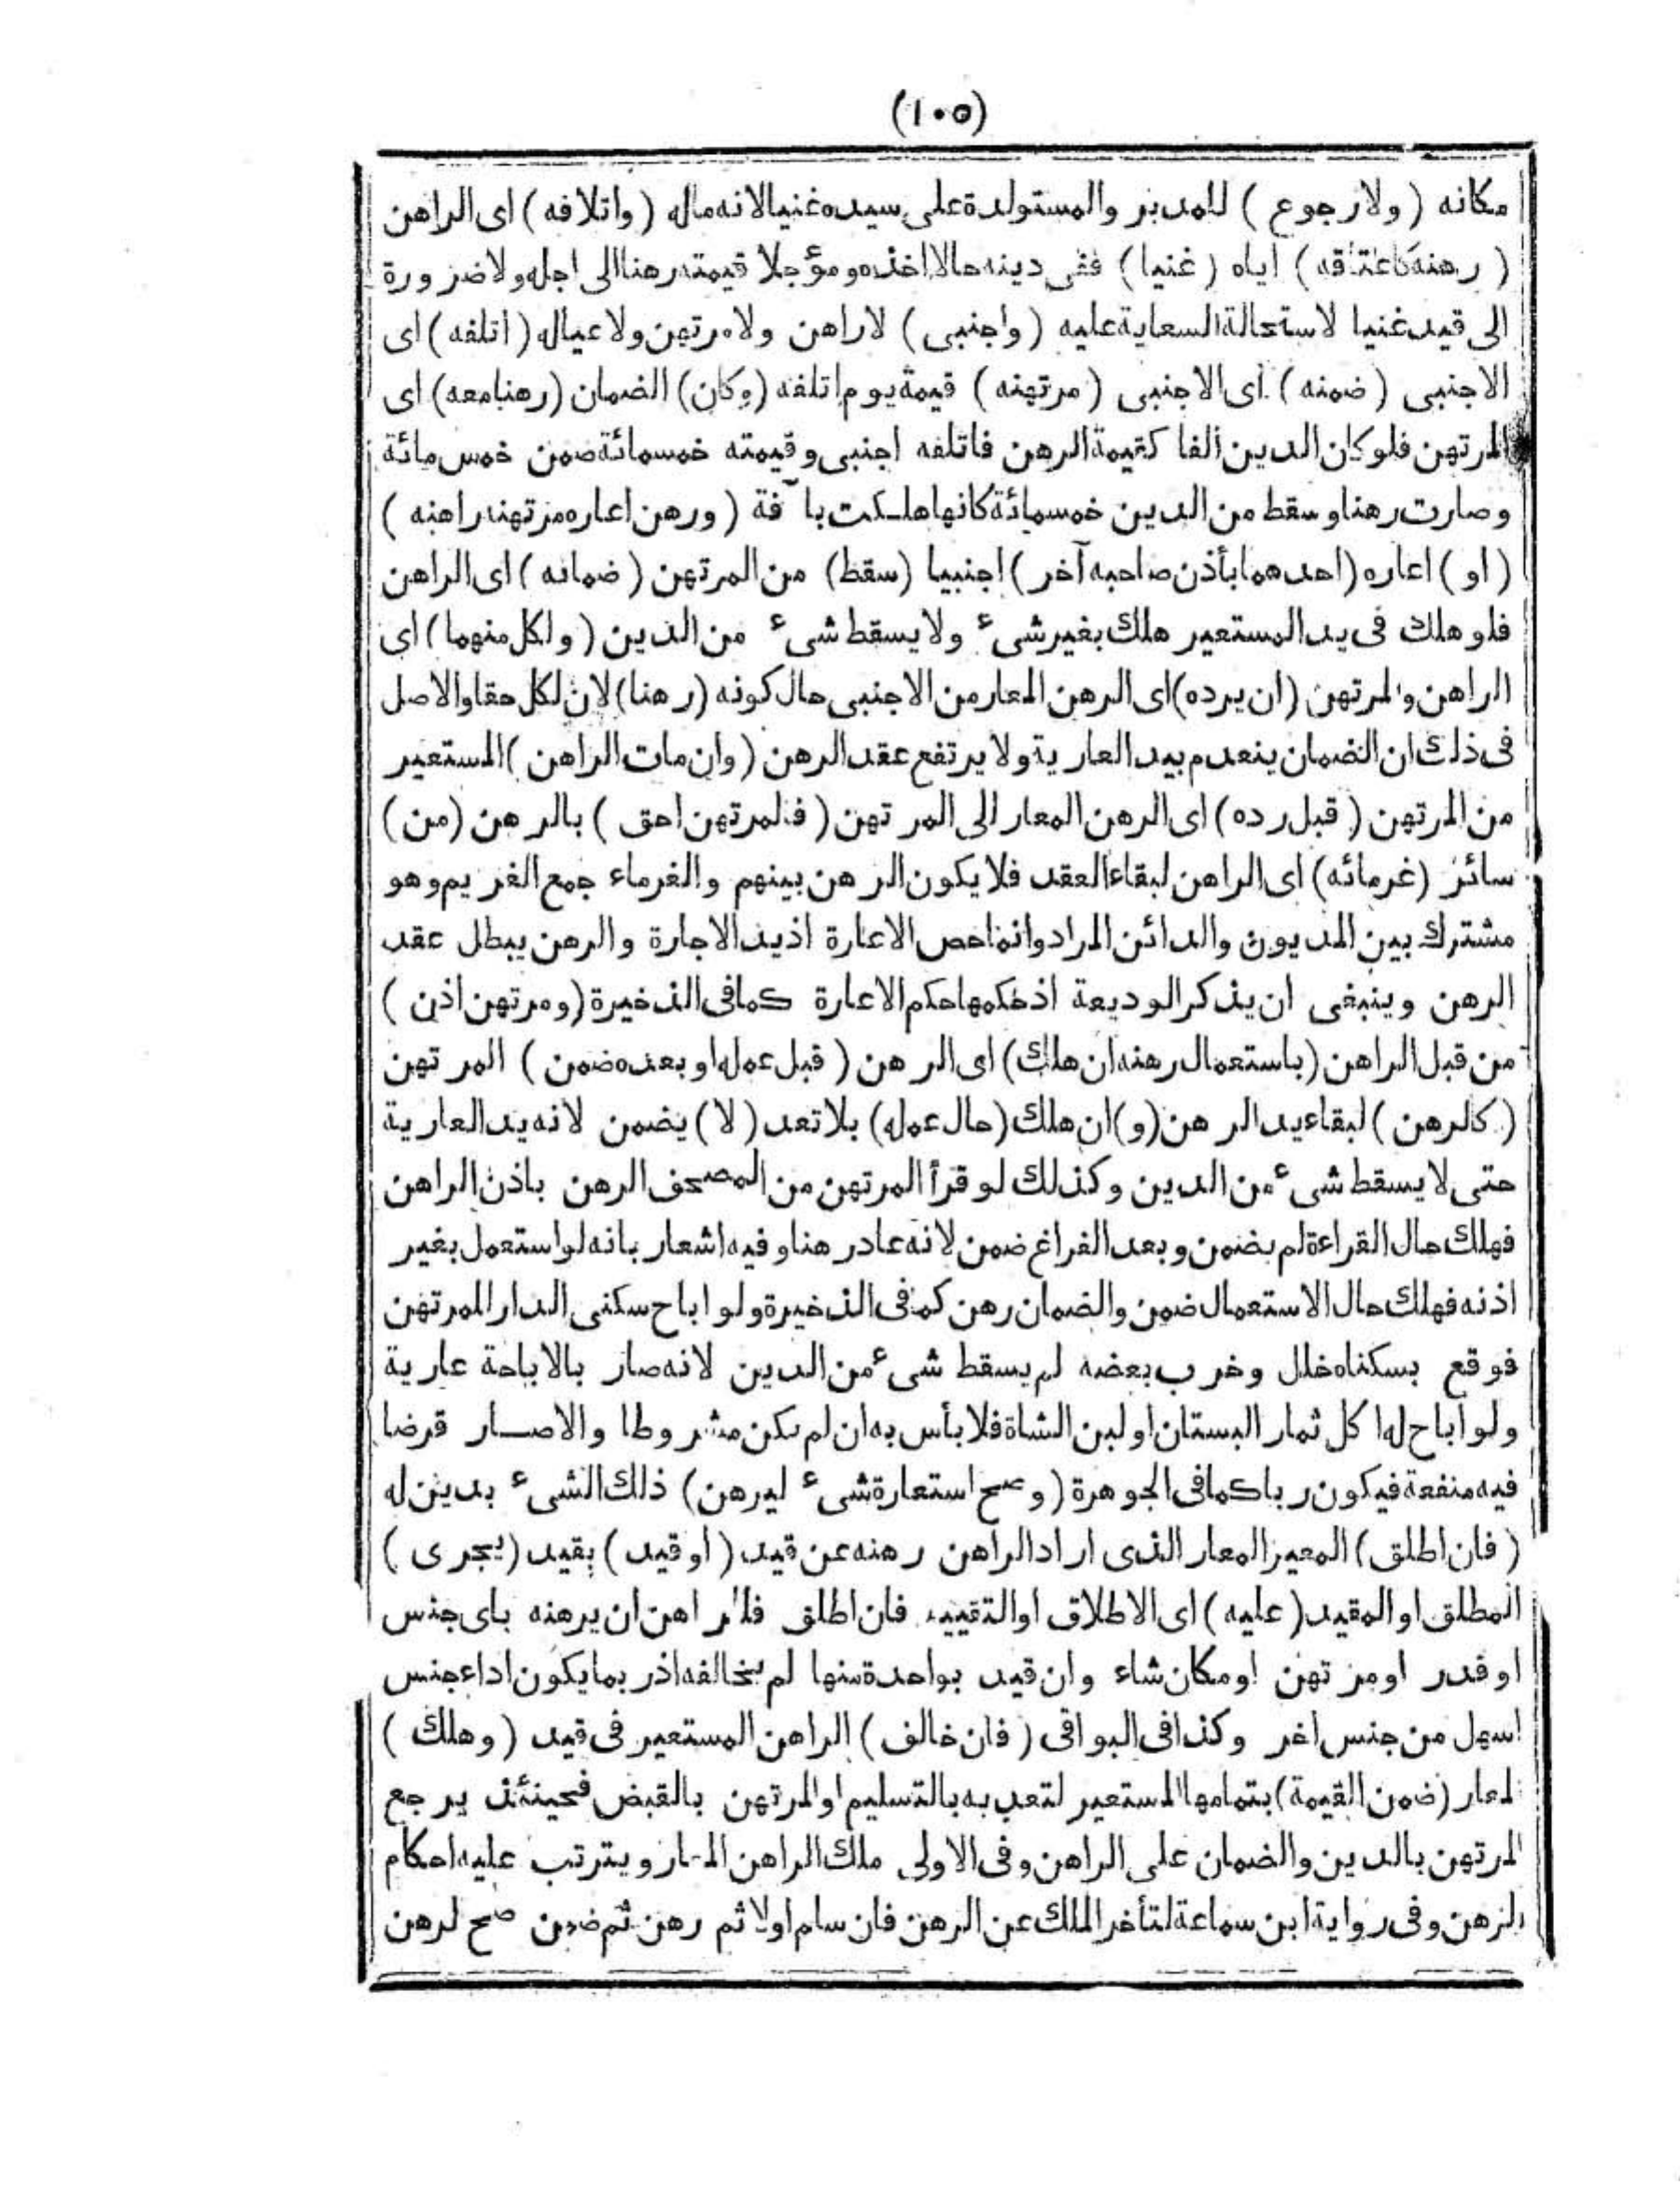 (١٠٥)
مكانه (ولارجوع) للمدبر والمستولدة على سيده غنيا لانه ماله (واتلافه) اى الراهن
(رهنه كاعتاقه) اياه (غنيا) ففى دينه حالا اخذه ومؤجلا قيمته رهنا الى اجله ولاضرورة
الى قيد غنيا لاستحالة السعاية عليه (واجنبى) لاراهن ولامرتهن ولاعياله (اتلفه) اى
الاجنبى (ضمنه) اى الاجنبى (مرتهنه) قيمة يوم اتلفه (وكان) الضمان (رهنا معه) اى
المرتهن فلو كان الدين الفا كقيمة الرهن فاتلفه اجنبى وقيمته خمسمائة ضمن خمس مائة
وصارت رهنا وسقط من الدين خمسمائة كانها هلكت بآفة (ورهن اعاره مرتهنه راهنه)
(او) اعاره (احدهما بأذن صاحبه آخر) اجنبيا (سقط) من المرتهن (ضمانه) اى الراهن
فلو هلك فى يد المستعير هلك بغير شىء ولا يسقط شىء من الدين (ولكل منهما) اى
الراهن والمرتهن (ان يرده) اى الرهن المعار من الاجنبى حال كونه (رهنا) لان لكل حقا والاصل
فى ذلك ان الضمان ينعدم بيد العارية ولا يرتفع عقد الرهن (وان مات الراهن) المستعير
من المرتهن (قبل رده) اى الرهن المعار الى المرتهن (فالمرتهن احق) بالرهن (من)
سائر (غرمائه) اى الراهن لبقاء العقد فلا يكون الرهن بينهم والغرماء جمع الغريم وهو
مشترك بين المديون والدائن المراد وانما خص الاعارة اذ يد الاجارة والرهن يبطل عقد
الرهن وينبغى ان يذكر الوديعة اذ حكمها حكم الاعارة كما فى الذخيرة (ومرتهن اذن)
من قبل الراهن (باستعمال رهنه ان هلك) اى الرهن (قبل عمله او بعده ضمن) المرتهن
(كالرهن) لبقاء يد الرهن (و) ان هلك (حال عمله) بلا تعد (لا) يضمن لانه يد العارية
حتى لا يسقط شىء من الدين وكذلك لو قرأ المرتهن من المصحف الرهن باذن الراهن
فهلك حال القراءة لم يضمن وبعد الفراغ ضمن لانه عاد رهنا وفيه اشعار بانه لو استعمل بغير
اذنه فهلك حال الاستعمال ضمن والضمان رهن كما فى الذخيرة ولو اباح سكنى الدار للمرتهن
فوقع بسكناه خلل وخرب بعضه لم يسقط شىء من الدين لانه صار بالاباحة عارية
ولو اباح له اكل ثمار البستان او لبن الشاة فلا بأس به ان لم يكن مشروطا والا صار قرضا
فيه منفعة فيكون ربا كما فى الجوهرة (وصح استعارة شىء ليرهن) ذلك الشىء بدين له
(فان اطلق) المعير المعار الذى اراد الراهن رهنه عن قيد (او قيد) بقيد (يجرى)
المطلق او المقيد (عليه) اى الاطلاق او التقييد فان اطلق فللراهن ان يرهنه باى جنس
او قدر او مرتهن او مكان شاء وان قيد بواحدة منها لم يخالفه اذ ربما يكون اداء جنس
اسهل من جنس اخر وكذا فى البواقى (فان خالف) الراهن المستعير فى قيد (وهلك)
لمعار (ضمن القيمة) بتمامها المستعير لتعديه بالتسليم او المرتهن بالقبض فحينئذ يرجع
المرتهن بالدين والضمان على الراهن وفى الاولى ملك الراهن المعار ويترتب عليه احكام
الرهن وفى رواية ابن سماعة لتأخر الملك عن الرهن فان سلم اولا ثم رهن ثم ضمن صح لرهن